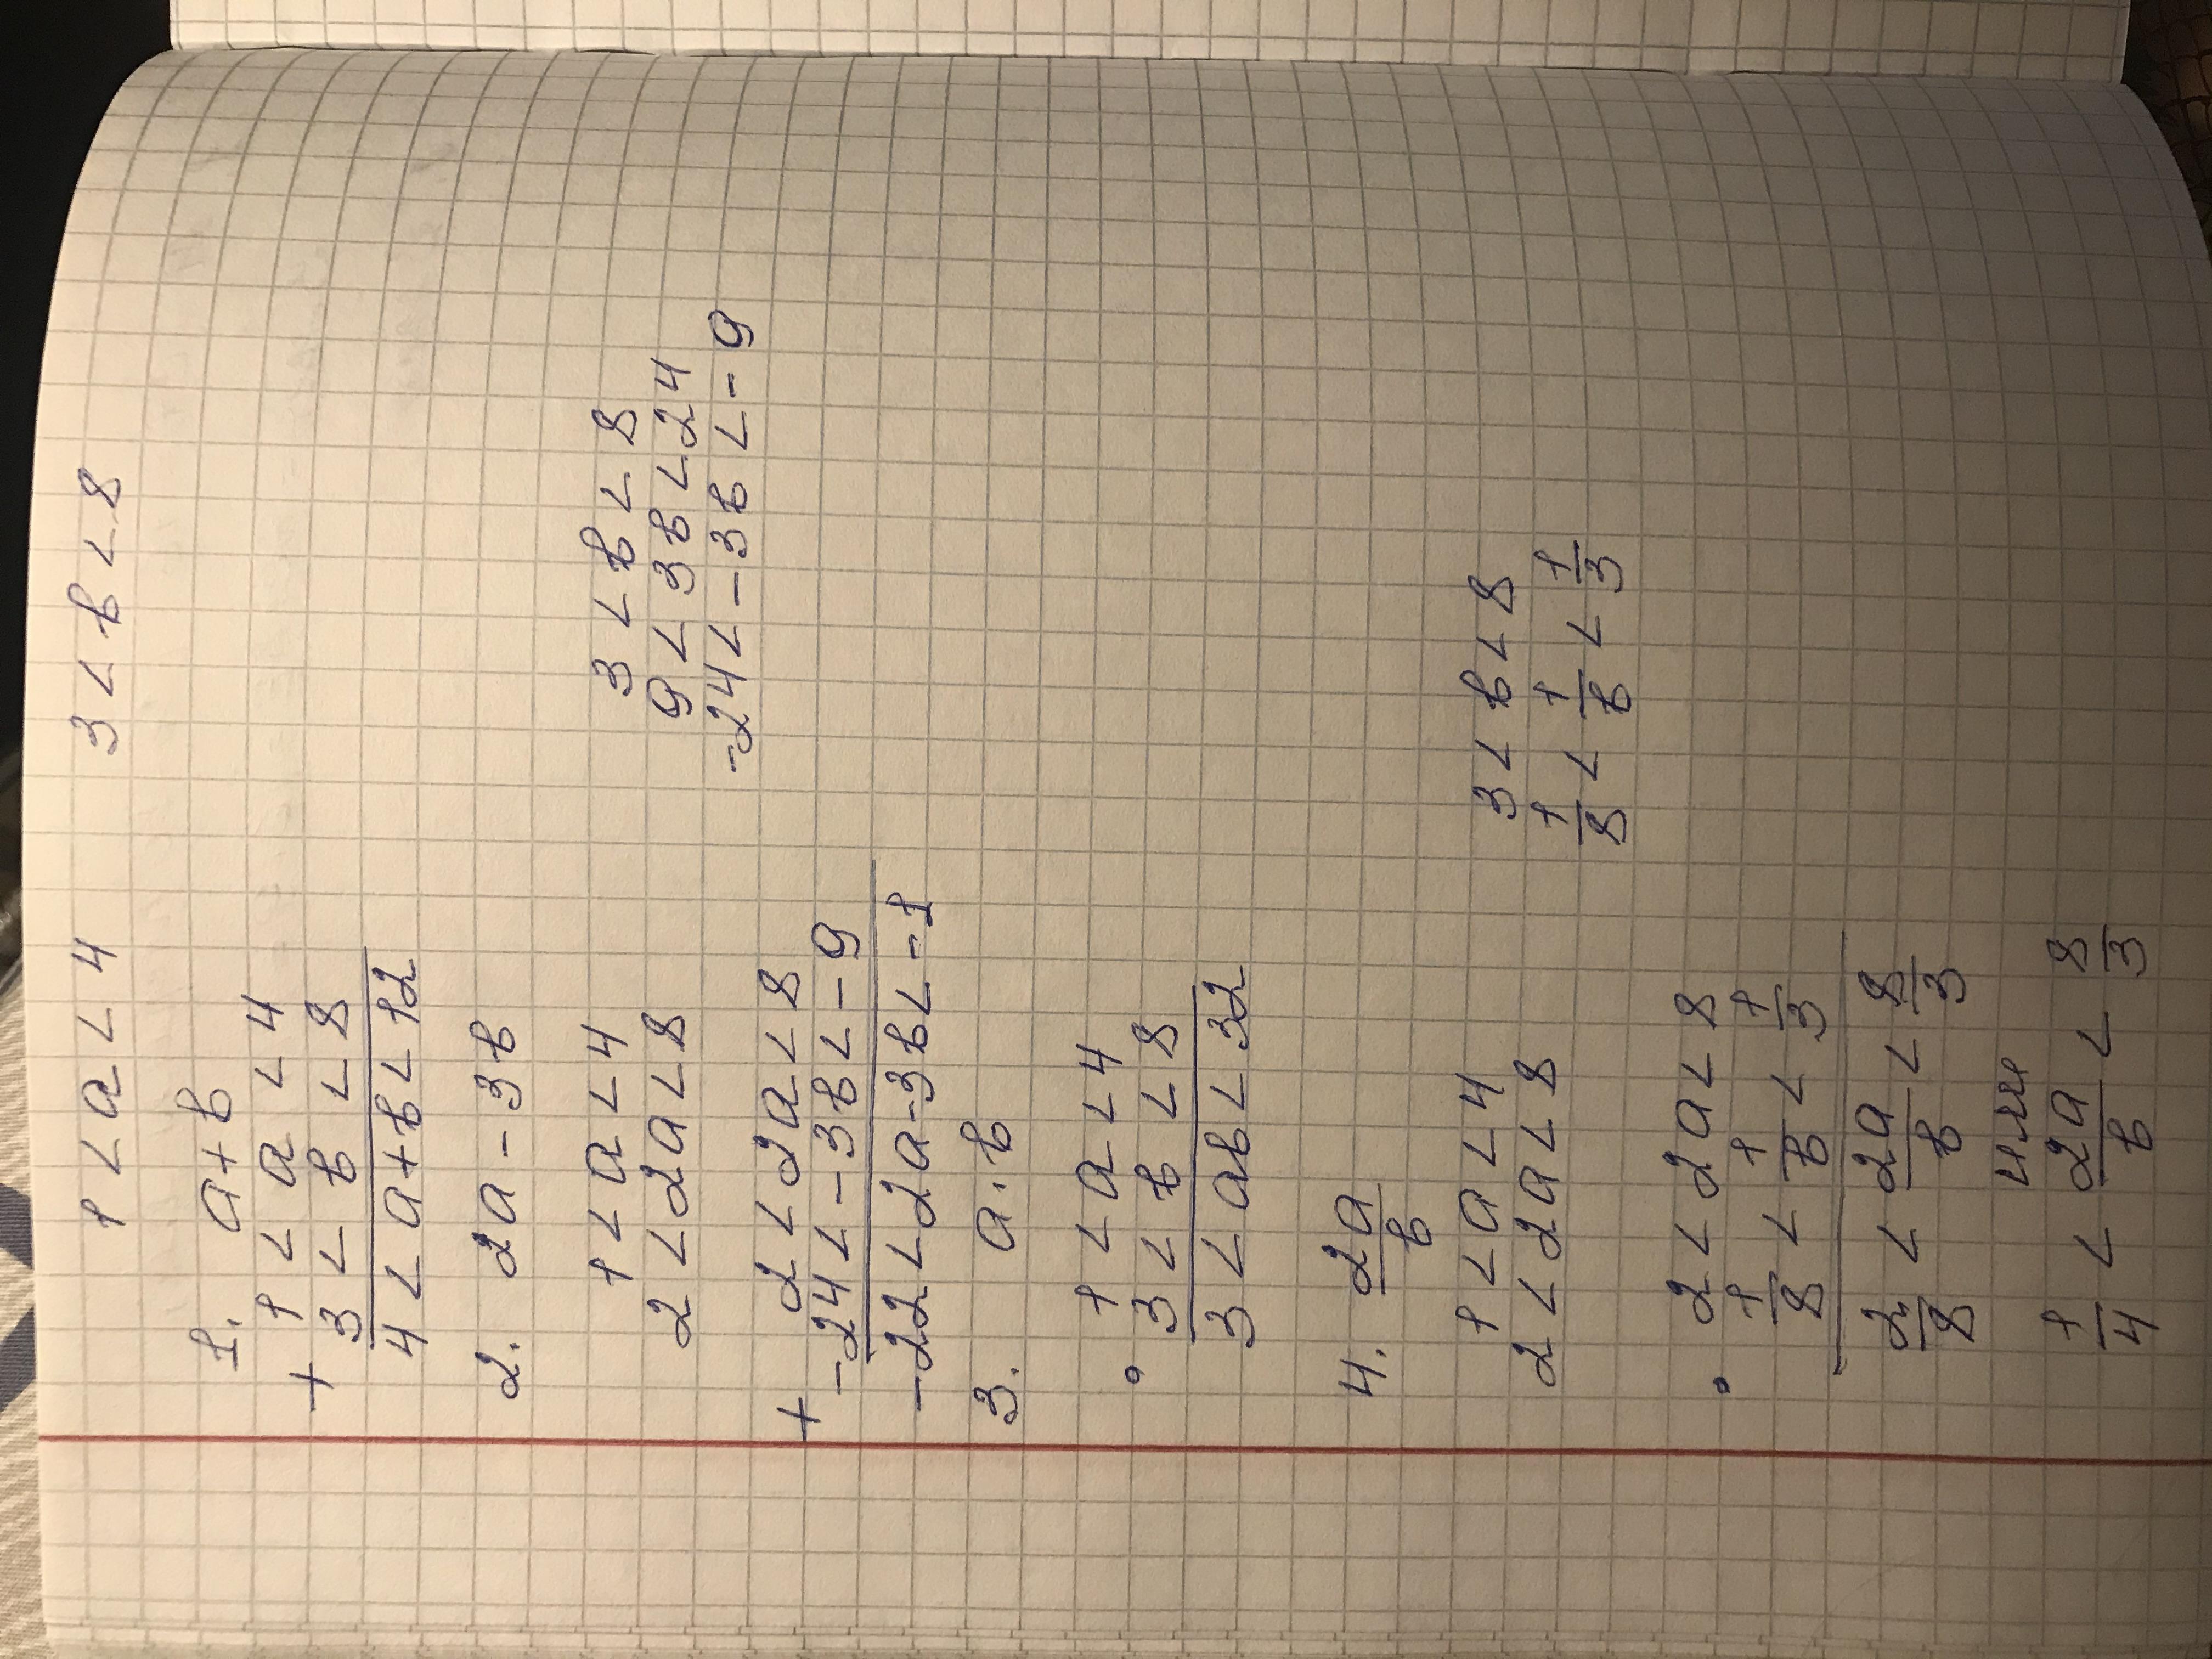 1 < a < 4    3 < в < 8
1. a + в
1 < a < 4
+ 3 < в < 8
4 < a + в < 12
2. 2a - 3в
1 < a < 4    3 < в < 8
2 < 2a < 8    9 < 3в < 24
-24 < -3в < -9
2 < 2a < 8
+ -24 < -3в < -9
-22 < 2a - 3в < -1
3. a · в
1 < a < 4
· 3 < в < 8
3 < aв < 32
4. 2a/в
1 < a < 4    3 < в < 8
2 < 2a < 8    1/8 < 1/в < 1/3
2 < 2a < 8
· 1/8 < 1/в < 1/3
2/8 < 2a/в < 8/3
или
1/4 < 2a/в < 8/3